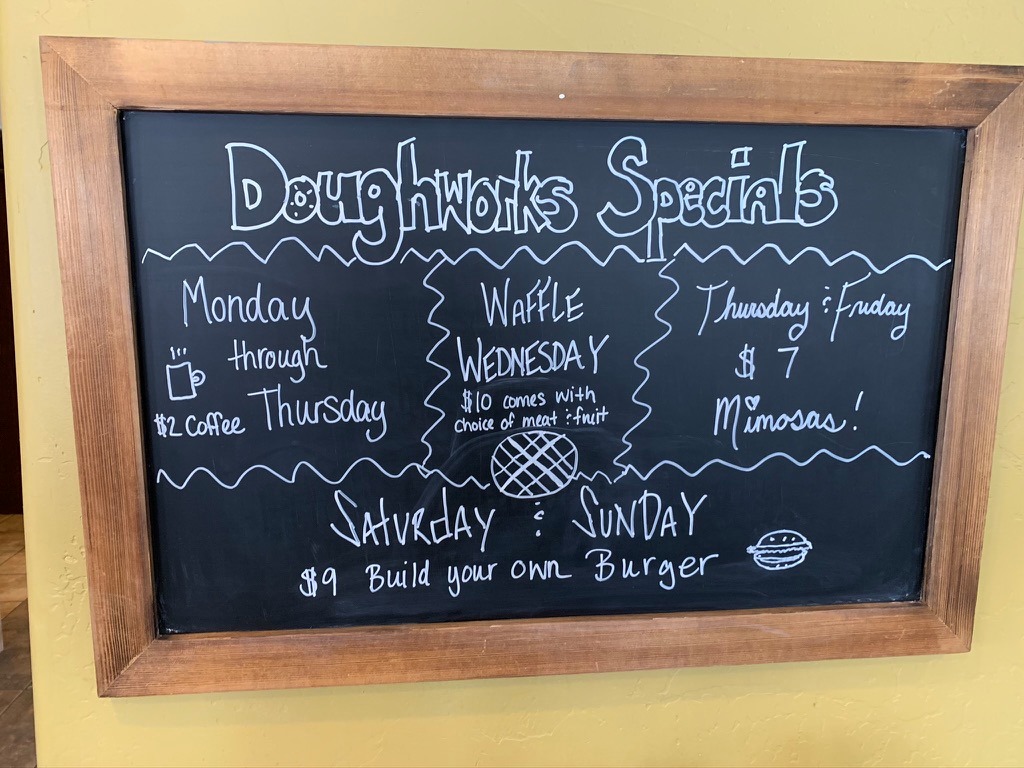 Doughworks Specials
Monday
through
Thursday
$2 Coffee
WAFFLE
WEDNESDAY
$10 comes with
choice of meat & fruit
Thursday & Friday
$ 7
Mimosas!
SATURDAY & SUNDAY
$9 Build your own Burger